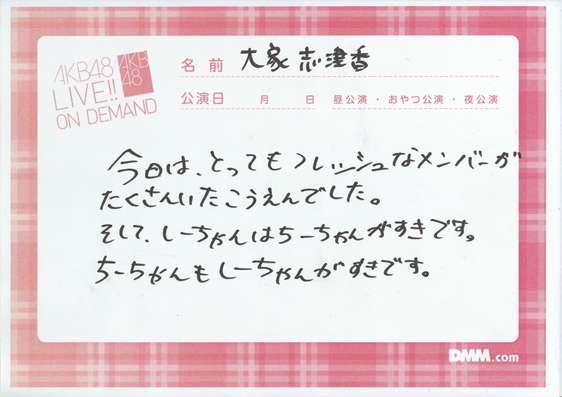 AKB48
LIVE!!
ON DEMAND
AKB
48
名前 大家志津香
公演日 月 日 昼公演・おやつ公演・夜公演
今日は、とってもフレッシュなメンバーが
たくさんいたこうえんでした。
そして、しーちゃんはちーちゃんがすきです。
ちーちゃんもしーちゃんがすきです。
DMM.com